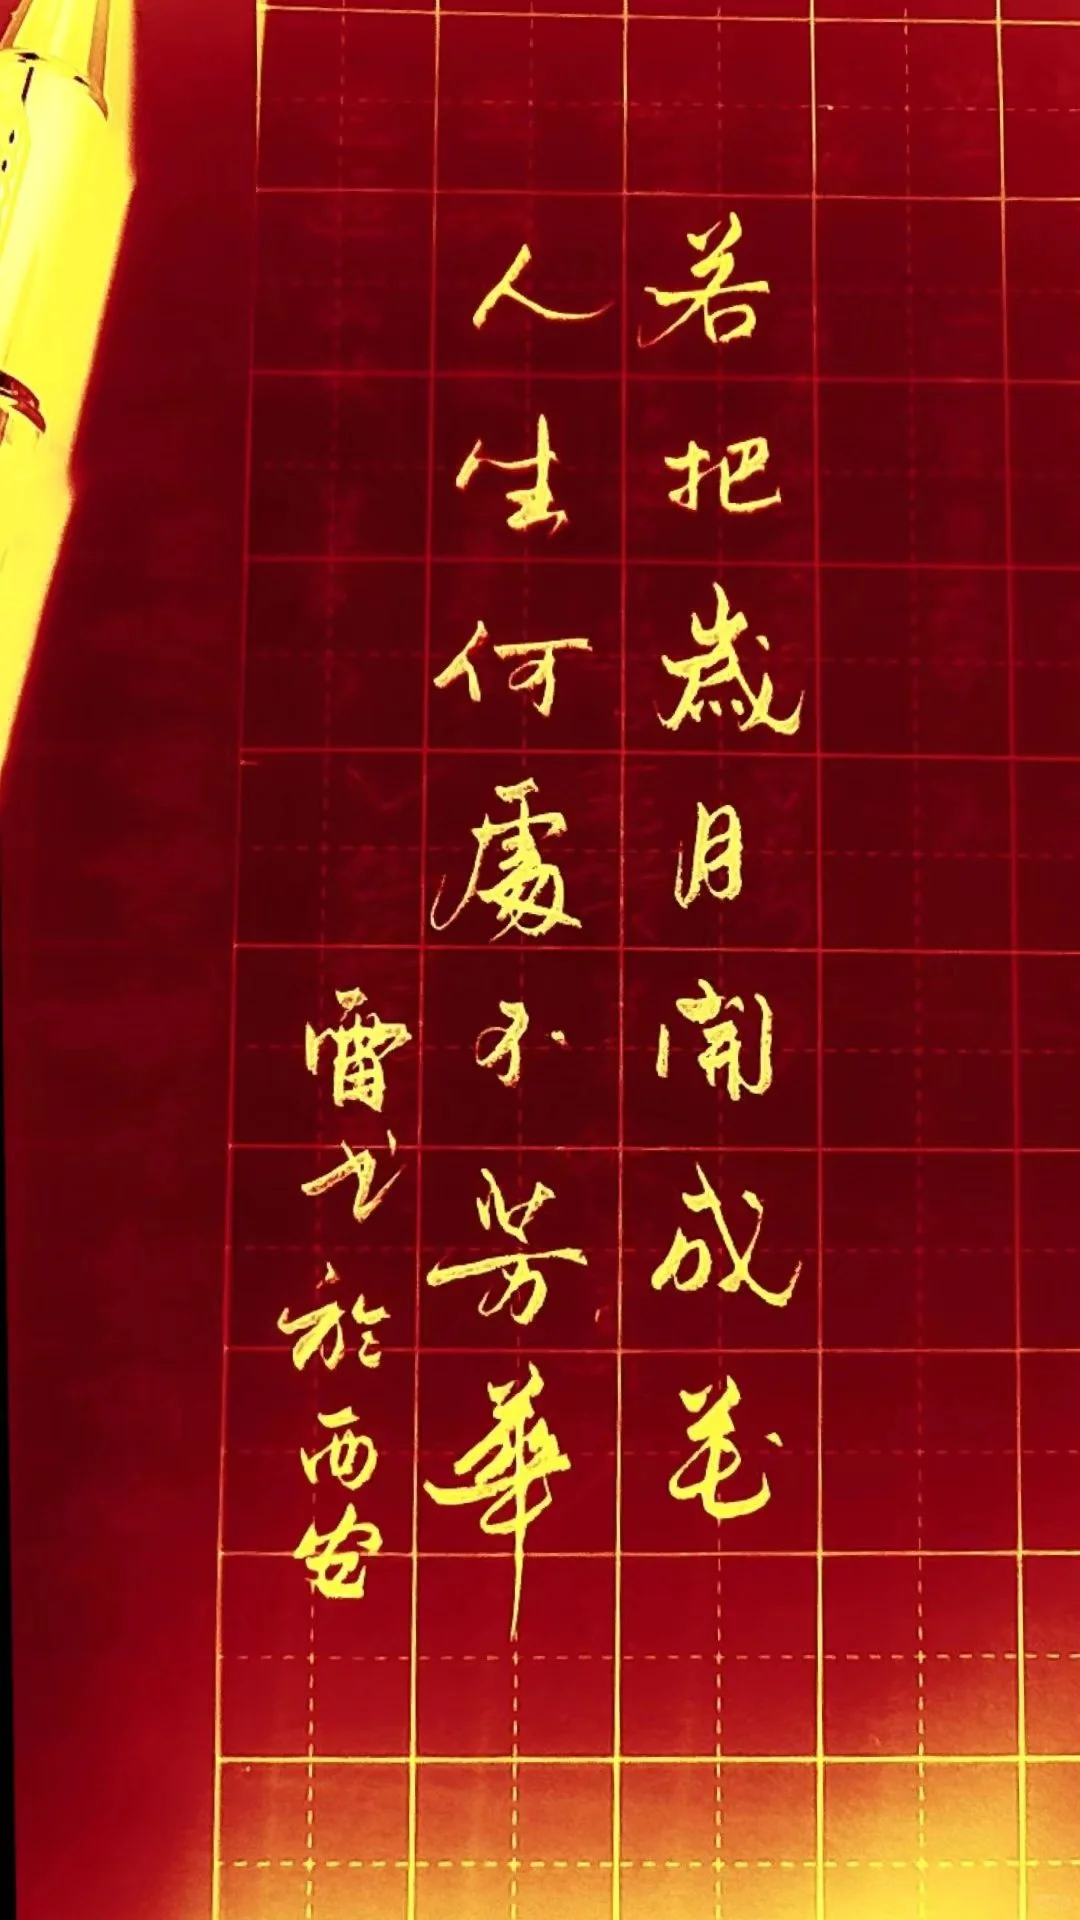 若把歲月開成花
人生何處不芳華
雷書於西安